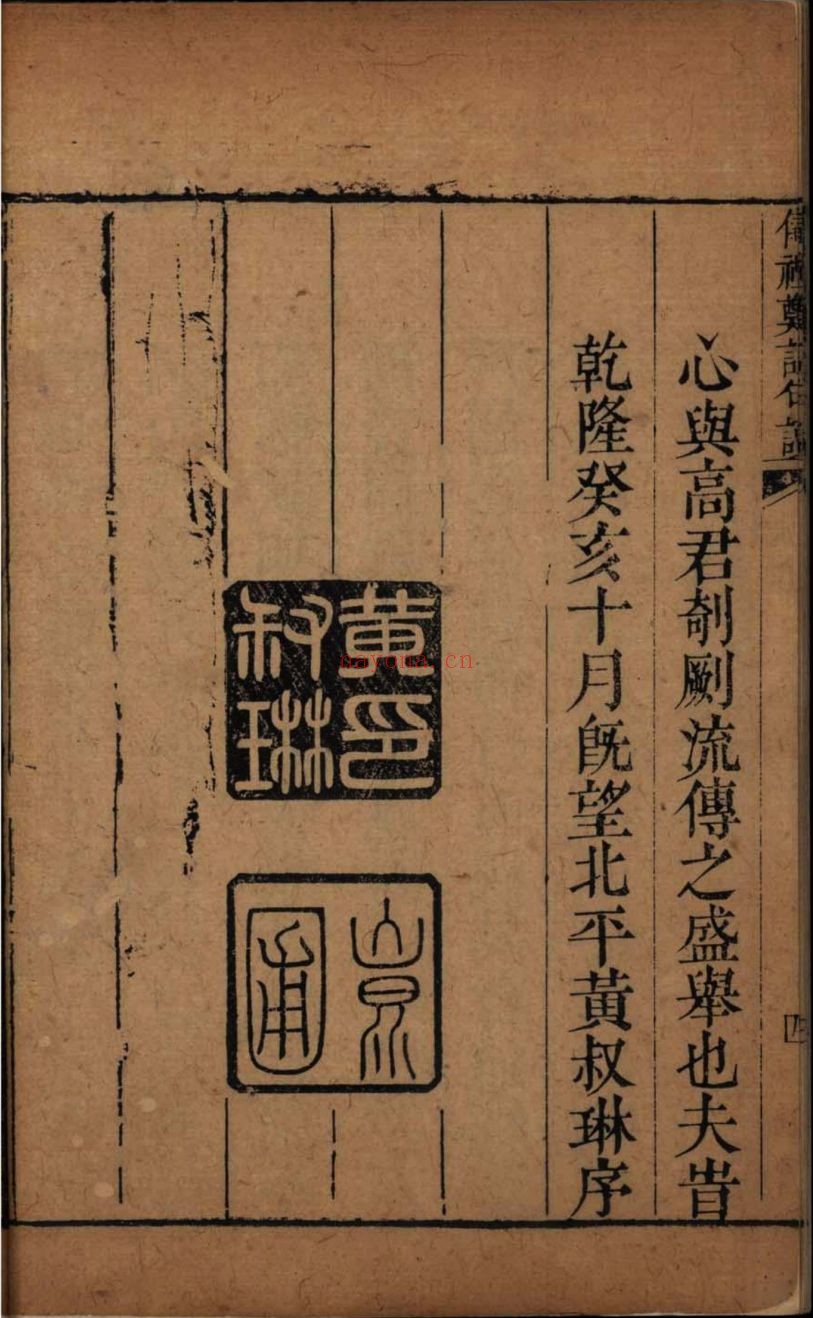 儀禮鄭註句讀
四
心與高君剞劂流傳之盛舉也夫旹
乾隆癸亥十月旣望北平黃叔琳序
黃印
叔琳
崑
圃